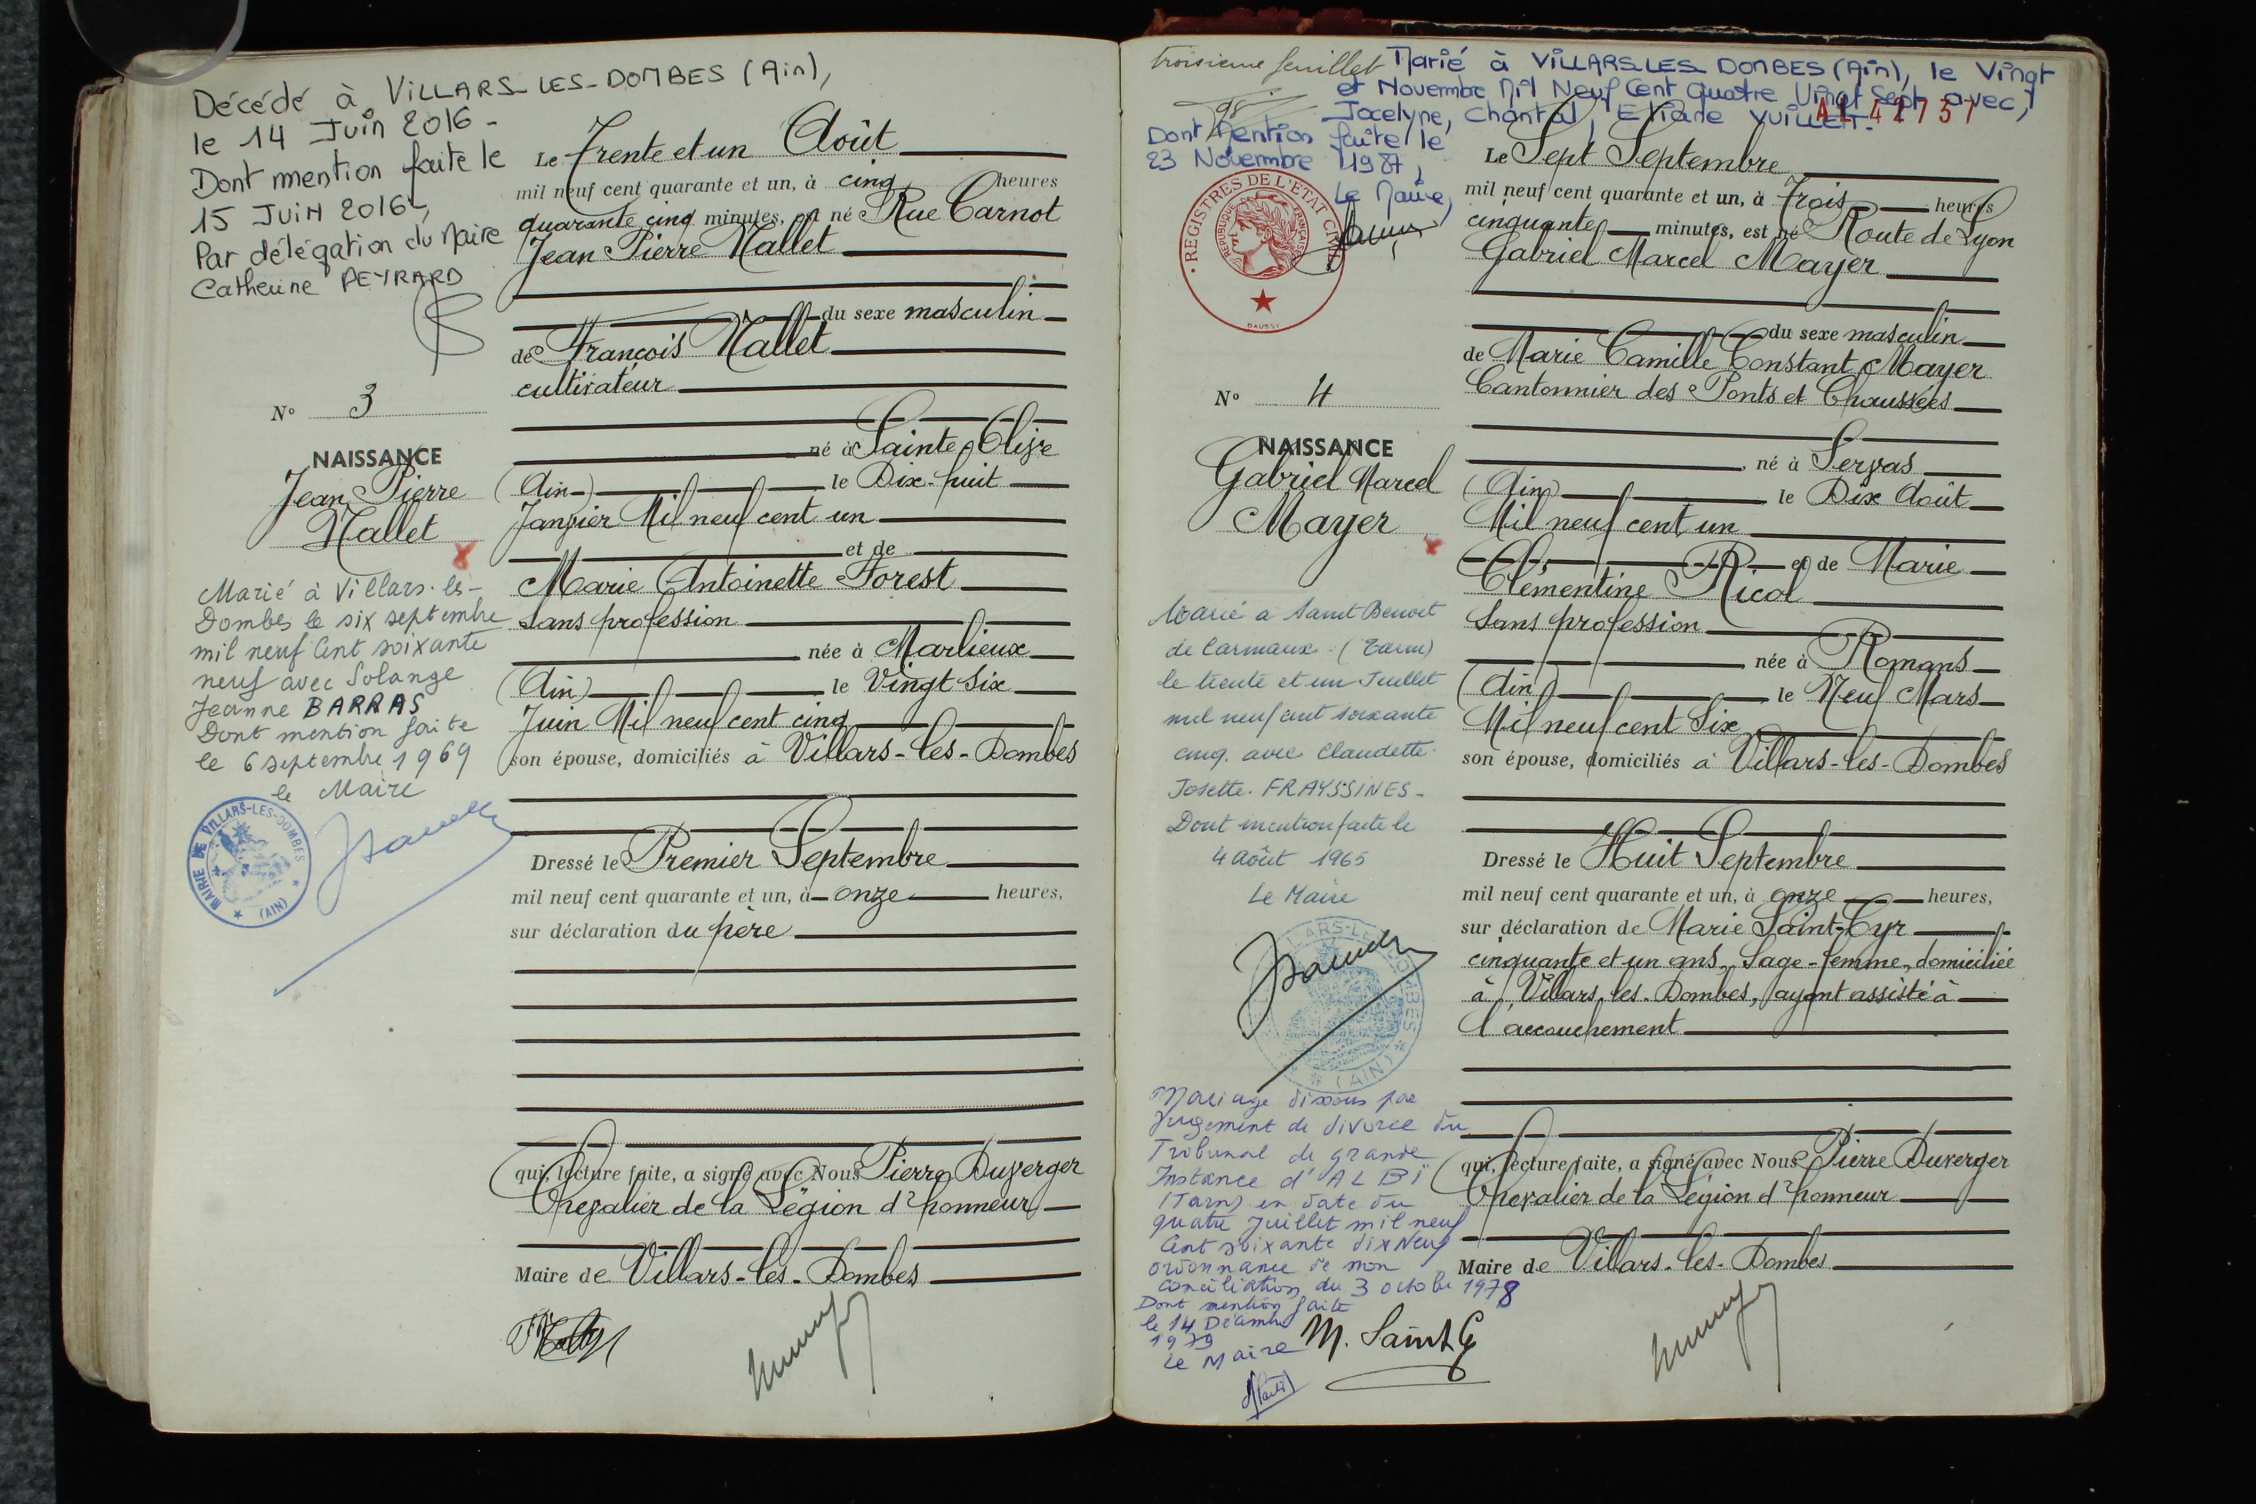 Décédé à VILLARS-LES-DOMBES (Ain),
le 14 Juin 2016 -
Dont mention faite le
15 JUIN 2016,
Par délégation du Maire
Catherine PEYRARD
N° 3
NAISSANCE
Jean Pierre
Mallet
Marié à Villars-les-
Dombes le six septembre
mil neuf Cent soixante
neuf avec Solange
Jeanne BARRAS
Dont mention faite
le 6 septembre 1969
le Maire
MAIRIE DE VILLARS-LES-DOMBES
(AIN)
Le Trente et un Août
mil neuf cent quarante et un, à cinq heures
quarante cinq minutes, est né Rue Carnot
Jean Pierre Mallet
du sexe masculin
de François Mallet
cultivateur
né à Sainte Olive
(Ain) le Dix-huit
Janvier Mil neuf cent un
et de
Marie Antoinette Forest
sans profession
née à Marlieux
(Ain) le Vingt six
Juin Mil neuf cent cinq
son épouse, domiciliés à Villars-les-Dombes
Dressé le Premier Septembre
mil neuf cent quarante et un, à onze heures,
sur déclaration du père
qui, lecture faite, a signé avec Nous Pierre Duverger
Chevalier de la Légion d'honneur
Maire de Villars-les-Dombes
troisième feuillet
Marié à VILLARS-LES-DOMBES (Ain), le Vingt
et Novembre Mil Neuf Cent Quatre Vingt Sept avec,
Jocelyne, Chantal, Eliane VUILLET.
Dont Mention faite le
23 Novembre 1987,
Le Maire,
AL 42737
REGISTRES DE L'ETAT CIVIL
REPUBLIQUE FRANÇAISE
DAUSSY
N° 4
NAISSANCE
Gabriel Marcel
Mayer
Marié a Saint Benoit
de Carmaux (Tarn)
le trente et un Juillet
mil neuf cent soixante
cinq avec Claudette
Josette FRAYSSINES -
Dont mention faite le
4 Août 1965
Le Maire
VILLARS-LES-DOMBES
(AIN)
Mariage dissous par
Jugement de divorce du
Tribunal de grande
Instance d'ALBI
(Tarn) en date du
quatre Juillet mil neuf
Cent soixante dix Neuf
ordonnance de non
conciliation du 3 octobre 1978
Dont mention faite
le 14 Décembre
1979
Le Maire
Le Sept Septembre
mil neuf cent quarante et un, à Trois heures
cinquante minutes, est né Route de Lyon
Gabriel Marcel Mayer
du sexe masculin
de Marie Camille Constant Mayer
Cantonnier des Ponts et Chaussées
né à Servas
(Ain) le Dix Août
Mil neuf cent un
et de Marie
Clémentine Ricol
Sans profession
née à Romans
(Ain) le Neuf Mars
Mil neuf cent Six
son épouse, domiciliés à Villars-les-Dombes
Dressé le Huit Septembre
mil neuf cent quarante et un, à onze heures,
sur déclaration de Marie Saint-Cyr
cinquante et un ans, Sage-femme, domiciliée
à Villars-les-Dombes, ayant assisté à
l'accouchement
qui, lecture faite, a signé avec Nous Pierre Duverger
Chevalier de la Légion d'honneur
Maire de Villars-les-Dombes
M. Saint Cy